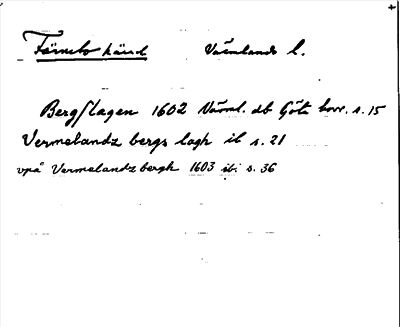 Färnebo härad Värmlands l.
Bergslagen 1602 Värml. db Göta hovr. s. 15
Vermelandz bergs lagh ib s. 21
vpå Vermelandz bergh 1603 ib. s. 36